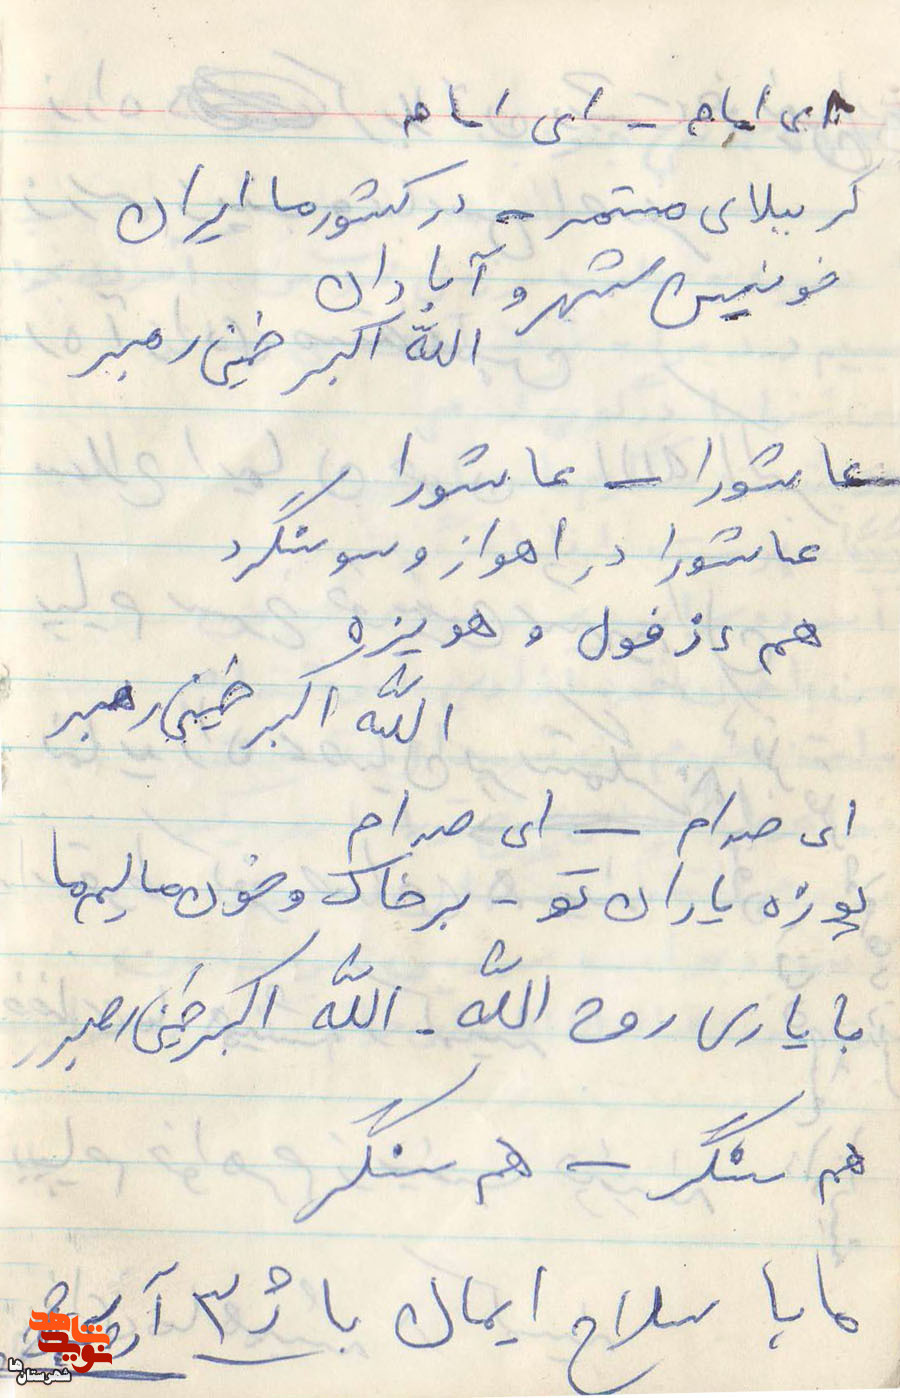 ای امام - ای امام
کربلای مستمر - در کشور ما ایران
خونین شهر و آبادان
الله اکبر خمینی رهبر
عاشورا - عاشورا
عاشورا در اهواز و سوسنگرد
هم دزفول و هویزه
الله اکبر خمینی رهبر
ای صدام - ای صدام
پوزه یاران تو - بر خاک و خون مالیم ما
با یاری روح الله - الله اکبر خمینی رهبر
هم سنگر - هم سنگر
ما با سلاح ایمان با ژ۳ آرپی
نوید شاهد
شهرستان ها